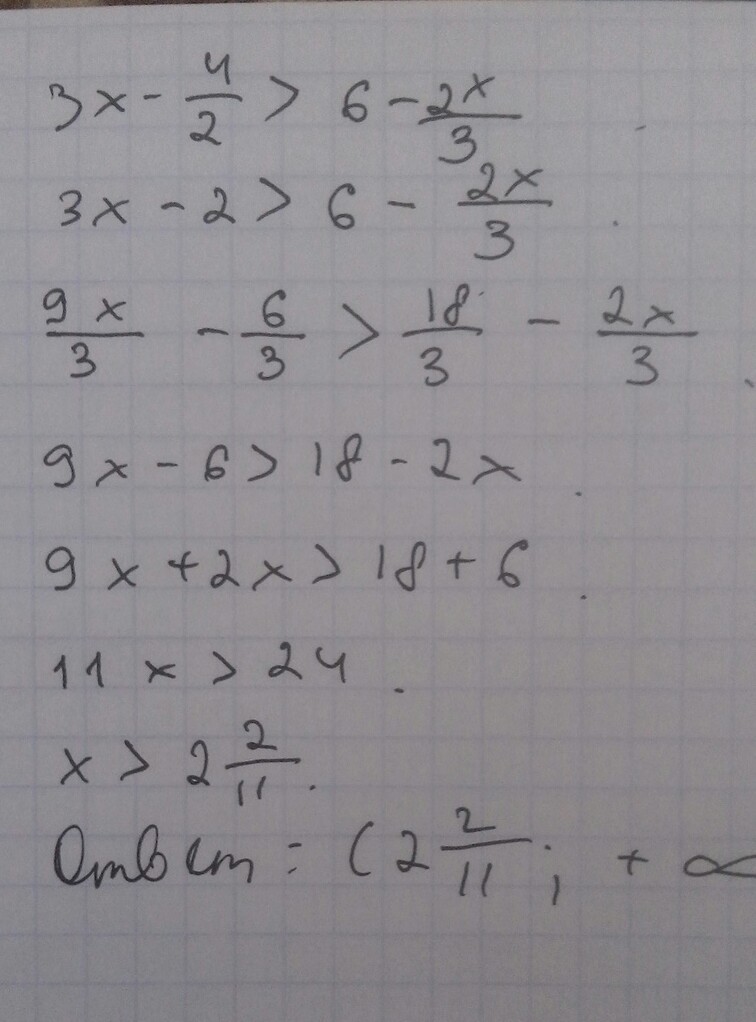 3x - 4/2 > 6 - 2x/3
3x - 2 > 6 - 2x/3
9x/3 - 6/3 > 18/3 - 2x/3
9x - 6 > 18 - 2x
9x + 2x > 18 + 6
11x > 24.
x > 2 2/11.
Ответ: (2 2/11; + ∞